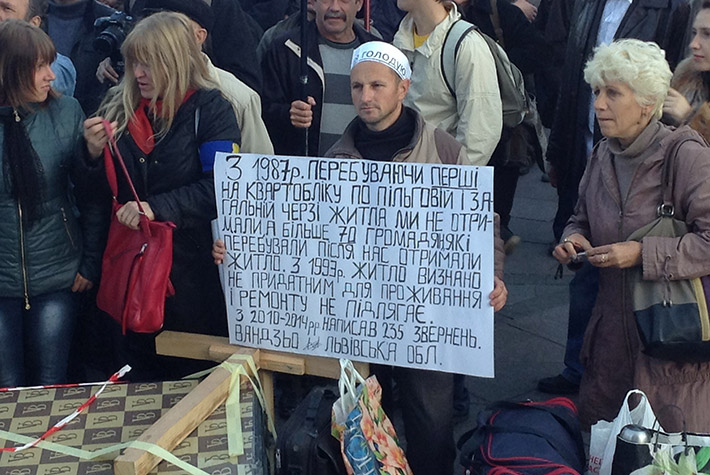 я голодую
З 1987р. ПЕРЕБУВАЮЧИ ПЕРШІ
НА КВАРТОБЛІКУ ПО ПІЛЬГОВІЙ І ЗА-
ГАЛЬНІЙ ЧЕРЗІ ЖИТЛА МИ НЕ ОТРИ-
МАЛИ А БІЛЬШЕ 70 ГРОМАДЯН ЯКІ
ПЕРЕБУВАЛИ ПІСЛЯ НАС ОТРИМАЛИ
ЖИТЛО. З 1993р. ЖИТЛО ВИЗНАНО
НЕ ПРИДАТНИМ ДЛЯ ПРОЖИВАННЯ
І РЕМОНТУ НЕ ПІДЛЯГАЄ.
З 2010-2014рр НАПИСАВ 235 ЗВЕРНЕНЬ.
ВАНДЗЬО ЛЬВІВСЬКА ОБЛ.